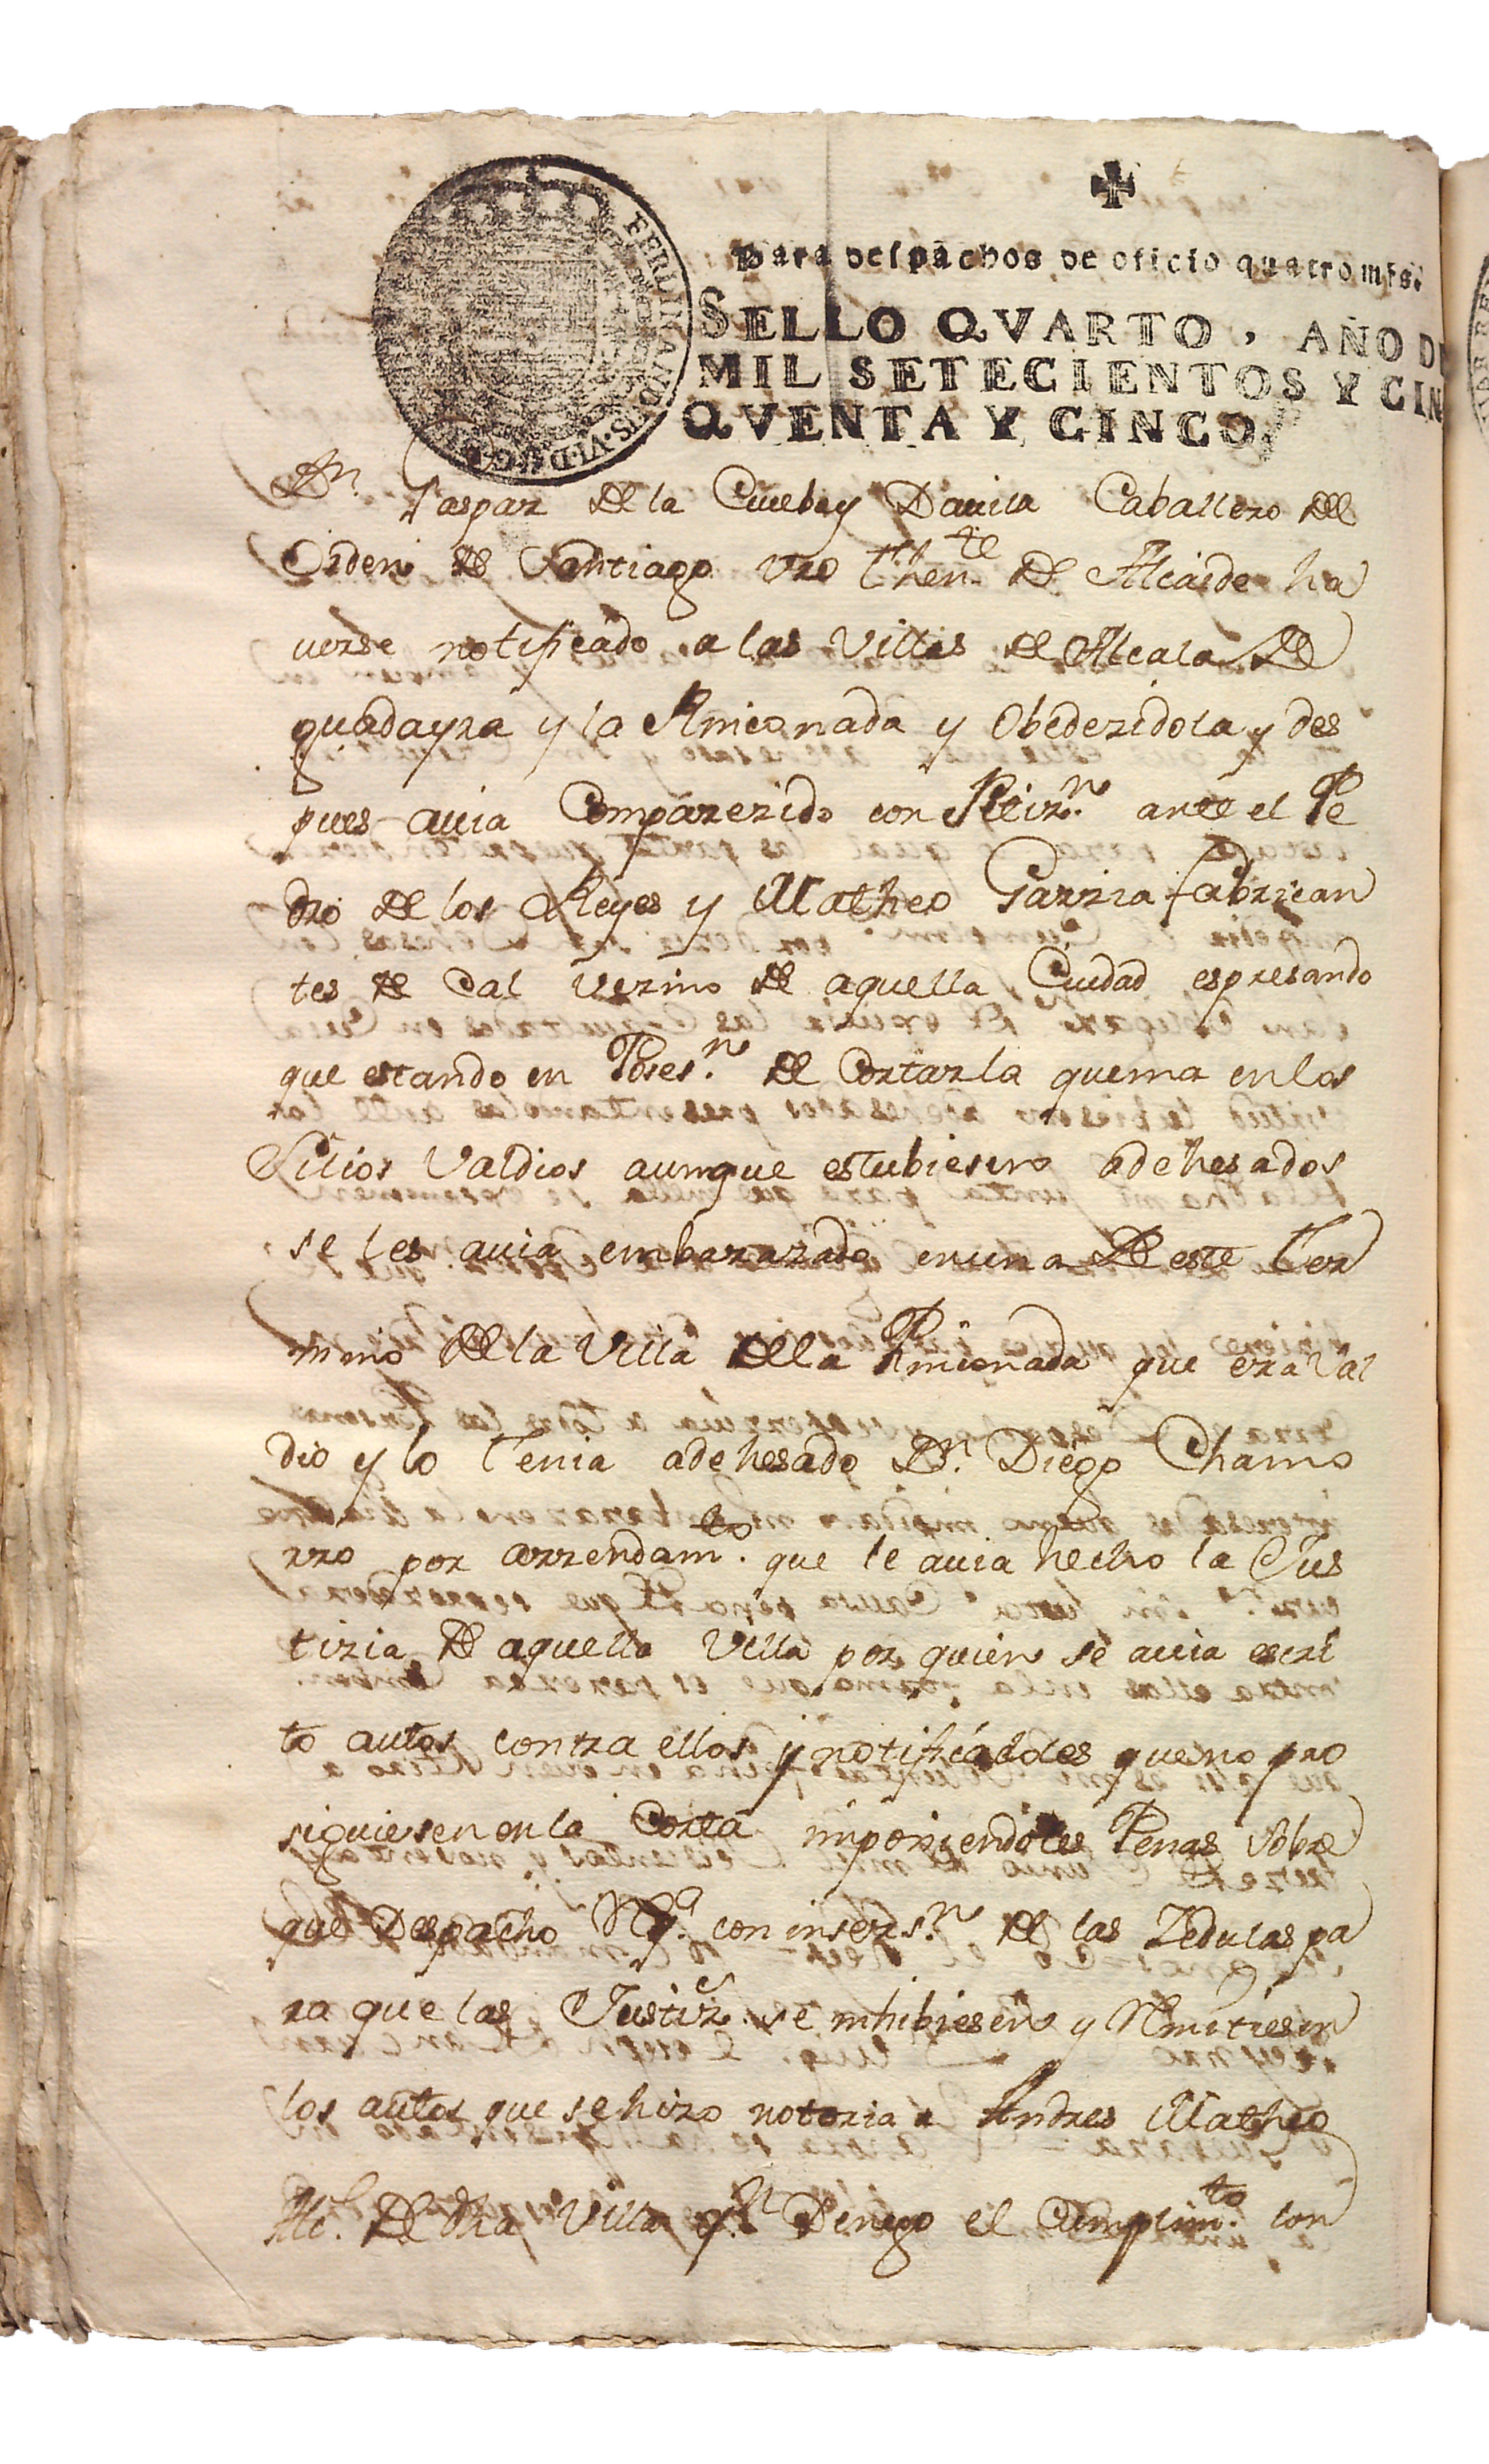 Para despachos de oficio quatro mrs.
SELLO QVARTO, AÑO DE
MIL SETECIENTOS Y CIN
QVENTA Y CINCO.
FERDINANDUS·VI·D·G
Dn. Gaspar de la Cueba y Dauila Caballero del
Orden de Santiago vro thente. de Alcaide ha
uerse notificado a las Villas de Alcala de
guadayra y la Rinconada y Obedezidola y des
pues auia Comparezido con Petizn. ante el Pe
dro de los Reyes y Matheo Garzia fabrican
tes de Cal vezino de aquella Ciudad espresando
que estando en Poses.n de Cortar la quema en los
Sitios Valdios aunque estubiesen adehesados
se les auia embarazado en una de este Ter
mino de la Villa de la Rinconada que era Val
dio y lo Tenia adehesado Dn. Diego Chamo
rro por arrendamto. que le auia hecho la Jus
tizia de aquella Villa por quien se auia escri
to autos contra ellos y notificadoles que no pro
siguiesen en la Corta imponiendoles Penas sobre
que Despacho Rqa. con inserz.n de las Zedulas pa
ra que las Justize. se inhibiesen y Remitiesen
los autos que se hizo notoria a Andres Matheo
Alc. de dha Villa qn. Denego el Cumplimto. con